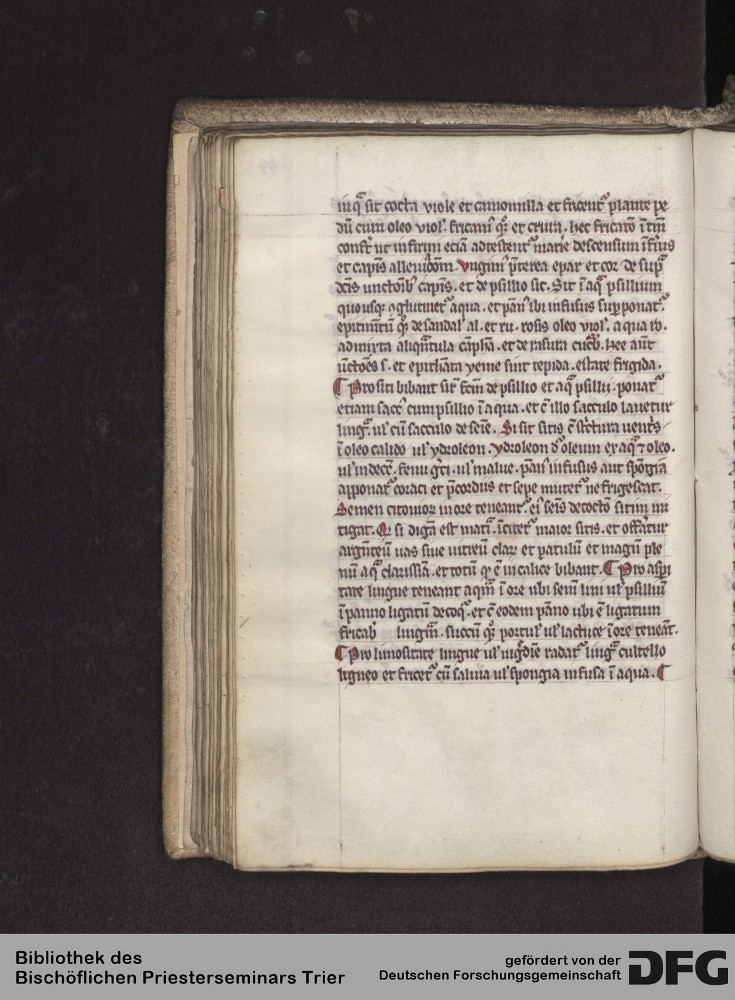 in qͣ sit cocta viole et camomilla et fricentᷣ plante pe
dū cum oleo viol᷑. fricant᷑ qͦꝫ et crura. hec fricatō ītm̄
confert ut infirm eciā adtestentᷣ marie descensum īferius
et capitis alleuiatōm. Vngant᷑ p̄terea epar et cor de supᷓ
dc̄is unctoīb᷒ capitis. et de psillio sic. Sit ī aqᷓ psillium
quousqꝫ ꝯglutinetᷣ aqua. et pān᷒ ibi infusus supponatᷣ.
epitimatū qͦꝫ de sandal᷑ al. et ru. rosis oleo viol᷑. aqua ro.
admixta aliqͣntula camphͣa. et de rasura cucb᷑. Hee aūt
ūctōes s. et epithīata yeme sint tepida. estate frigida.
¶ Pro siti bibant sir᷑ fcm̄ de psillio et aqͣ psillii. ponatᷣ
etiam sacc᷑ cum psillio ī aqua. et cͫ illo sacculo lauetur
lingᷓ. ul᷑ cū sacculo de seīe. Si sit sitis
ī oleo calido ul᷑ ydroleon. ydroleon dᷣ oleum ex aqͣ ⁊ oleo.
ul᷑ in decc̄. fenu gͥci. ul᷑ malue. pān᷒ infusus aut spōgia
apponatᷣ coraci et p̄cordiis et sepe mutetᷣ ne frigescat.
Semen citonior᷑ in ore teneantᷣ. ei᷒ seīs decoctō sitim mi
tigat. Qꝫ si digͣa est matͥa. īcitetᷣ maior sitis. et offeratur
argēteū uas siue uitreū clar᷑ et patulū et magnū ple
nū aqᷓ clarissīa. et totū qͦ ē in calice bibant. ¶ Pro aspi
tate lingue teneant aqᷓm ī ore ubi semē lini ul᷑ psilliū
ī panno ligatū decoqᷣ. et cͫ eodem pāno ubi ē ligatum
fricab᷑ lingᷓm. succū qͦꝫ portul᷑ ul᷑ lactuce ī ore teneāt.
¶ Pro limositate lingue ul᷑ nigᷓdīe radatᷣ lingᷓ cultello
ligneo et fricetᷣ cū saluia ul᷑ spongia infusa ī aqua. ¶
Bibliothek des
Bischöflichen Priesterseminars Trier
gefördert von der
Deutschen Forschungsgemeinschaft
DFG